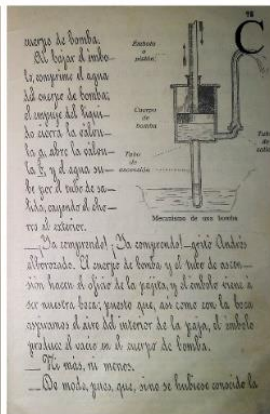 98
cuerpo de bomba.
Al bajar el émbo—
lo, comprime el agua
del cuerpo de bomba;
el empuje del líqui—
do cierra la válvu—
la a, abre la válvu—
la b, y el agua su—
be por el tubo de sa—
lida, cayendo el cho—
rro al exterior.
Émbolo
o
pistón
Cuerpo
de
bomba
Tubo
de
ascensión
Tubo
de
Mecanismo de una bomba
—¡Ya comprendo! ¡Ya comprendo!—gritó Andrés
alborozado. El cuerpo de bomba y el tubo de ascen—
sión hacen el oficio de la pajita, y el émbolo viene a
ser nuestra boca; puesto que, así como con la boca
aspiramos el aire del interior de la paja, el émbolo
produce el vacío en el cuerpo de bomba.
—Ni más, ni menos.
—De modo, pues, que, si no se hubiese conocido la
C